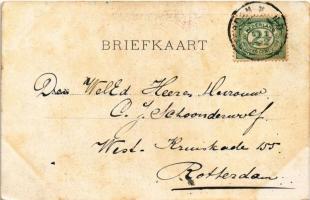 BRIEFKAART
2½
Den WelEd Heer en Mevrouw
C. J. Schoonderwolf
West-Kruiskade 155
Rotterdam